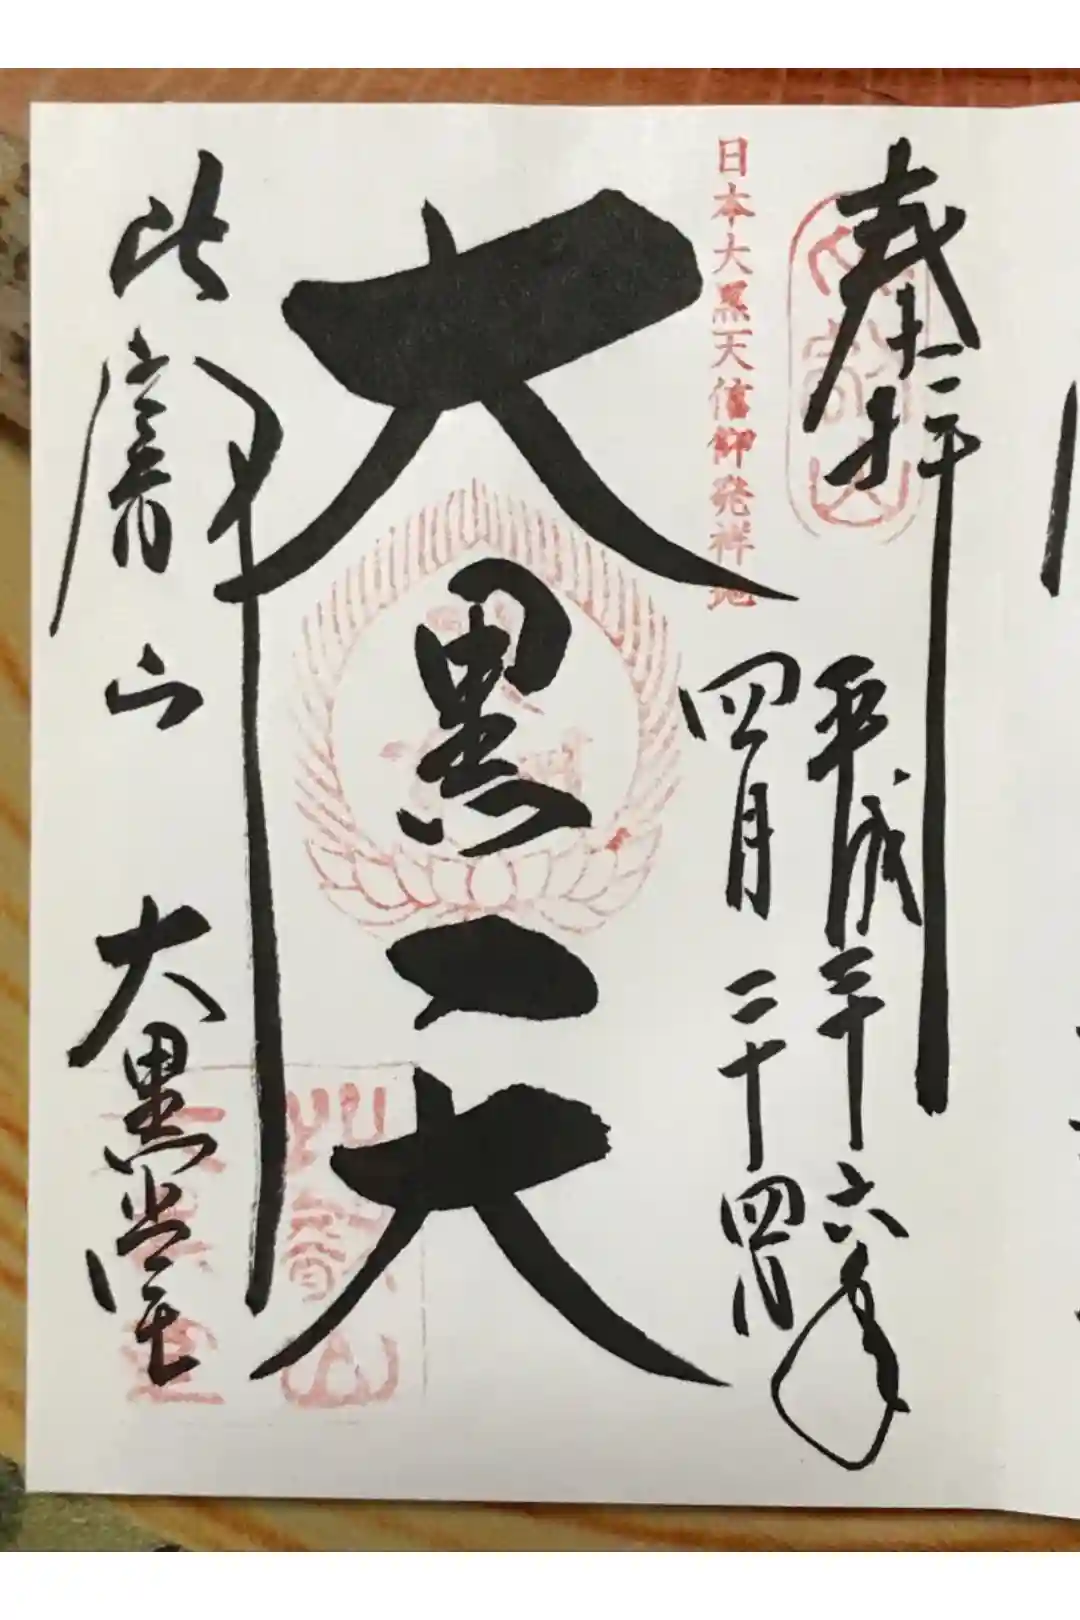 奉拝
平成二十六年
四月二十四日
日本大黒天信仰発祥地
大黒天
比叡山 大黒堂